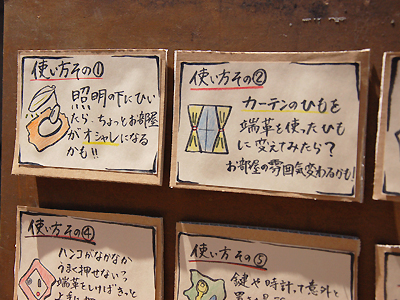 使い方その①
照明の下にひい
たら、ちょっとお部屋
がオシャレになる
かも!!
使い方その②
カーテンのひもを
端革を使ったひも
に変えてみたら?
お部屋の雰囲気変わるかも!
使い方その④
ハンコがなかなか
うまく押せない?
端革をしけばきっと
使い方その⑤
鍵や時計って意外と